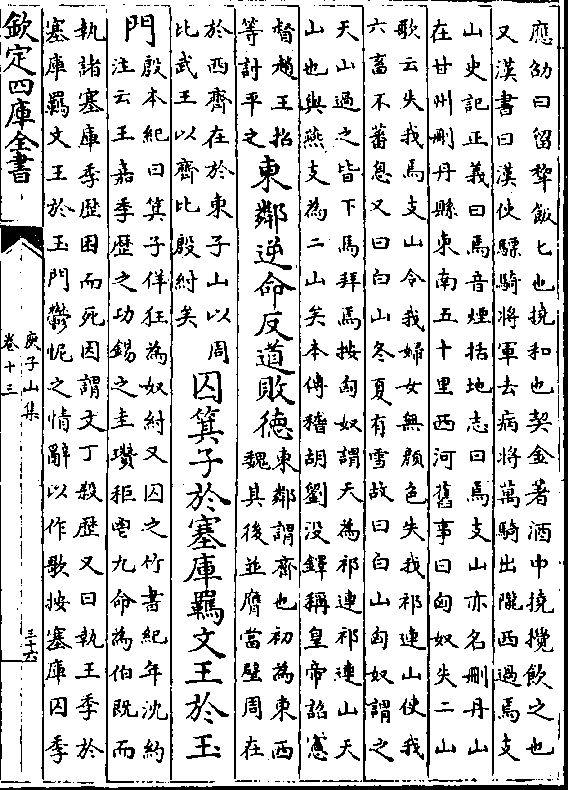 應劭曰留犂飯匕也撓和也契金著酒中撓攪飲之也
又漢書曰漢使驃騎將軍去病將萬騎出隴西過焉支
山史記正義曰焉音煙括地志曰焉支山亦名刪丹山
在甘州刪丹縣東南五十里西河舊事曰匈奴失二山
歌云失我焉支山令我婦女無顏色失我祁連山使我
六畜不蕃息又曰白山冬夏有雪故曰白山匈奴謂之
天山過之皆下馬拜焉按匈奴謂天為祁連祁連山天
山也與燕支為二山矣本傳稽胡劉没鐸稱皇帝詔憲
督趙王招
等討平之
東鄰逆命反道敗德
東鄰謂齊也初為東西
魏其後並膺當璧周在
於西齊在於東子山以周
比武王以齊比殷紂矣
囚箕子於塞庫羈文王於玉
門
殷本紀曰箕子佯狂為奴紂又囚之竹書紀年沈約
注云王嘉季歴之功錫之圭瓚秬鬯九命為伯既而
執諸塞庫季歴困而死因謂文丁殺歴又曰執王季於
塞庫羈文王於玉門鬱怩之情辭以作歌按塞庫囚季
欽定四庫全書
庾子山集
卷十三
三十六